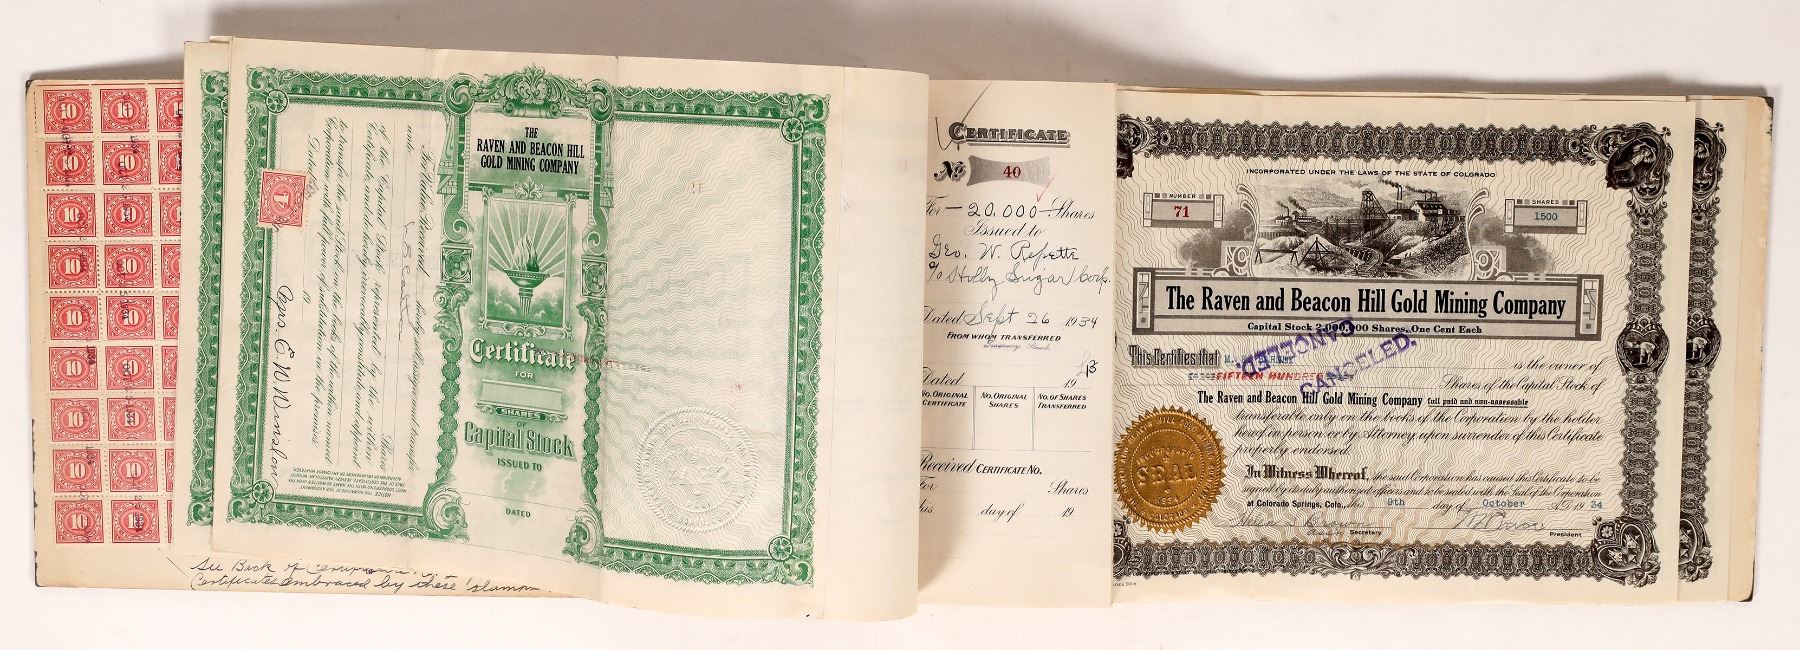 10 10
10 10
10 10
10 10
10 10
10 10
10 10
10 10
10 10
THE
RAVEN AND BEACON HILL
GOLD MINING COMPANY
For Value Received, hereby sell, assign and transfer
unto
Shares
of the Capital Stock represented by the within
Certificate and do hereby irrevocably constitute and appoint
to transfer the said Stock on the books of the within named
Corporation with full power of substitution in the premises
Dated 19
Certificate
FOR
SHARES
OF
Capital Stock
ISSUED TO
DATED
See Back of
Certificates embraced by these stamps
CERTIFICATE
No. 40
For 20,000 Shares
Issued to
Geo. W. Repetti
c/o Holly Sugar Corp.
Dated Sept 26 1934
FROM WHOM TRANSFERRED
Dated 19
NO. ORIGINAL CERTIFICATE NO. ORIGINAL SHARES NO. OF SHARES TRANSFERRED
Received CERTIFICATE NO.
For Shares
this day of 19
INCORPORATED UNDER THE LAWS OF THE STATE OF COLORADO
NUMBER
71
SHARES
1500
The Raven and Beacon Hill Gold Mining Company
Capital Stock 2,000,000 Shares, One Cent Each
This Certifies that is the owner of
FIFTEEN HUNDRED Shares of the Capital Stock of
CANCELED.
CANCELED.
The Raven and Beacon Hill Gold Mining Company full paid and non-assessable
transferable only on the books of the Corporation by the holder
hereof in person or by Attorney, upon surrender of this Certificate
properly endorsed.
In Witness Whereof, the said Corporation has caused this Certificate to be
signed by its duly authorized officers and to be sealed with the Seal of the Corporation
at Colorado Springs, Colo., this 9th day of October A.D. 1934
Secretary President
SEAL
1934